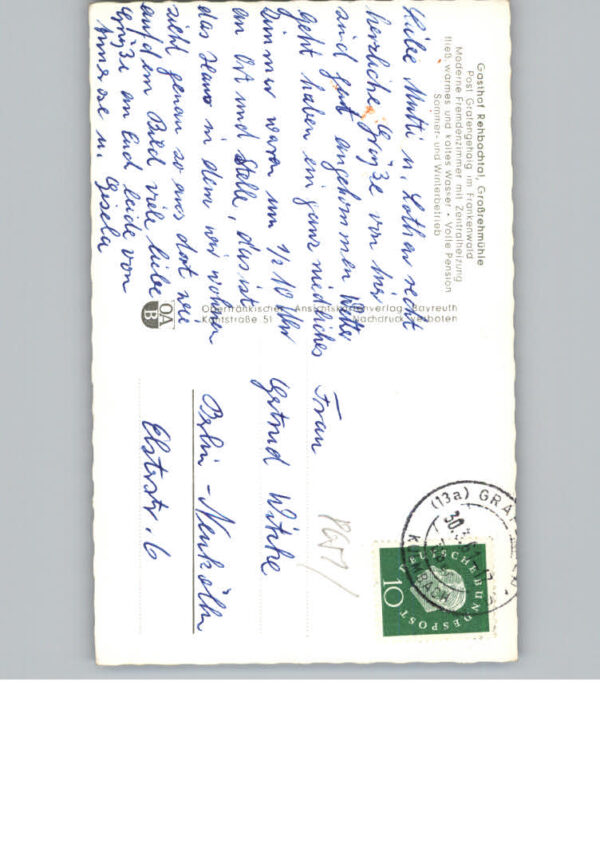 Gasthof Rehbachtal, Großrehmühle
Post Grafengehaig im Frankenwald
Moderne Fremdenzimmer mit Zentralheizung
fließ. warmes und kaltes Wasser • Volle Pension
Sommer- und Winterbetrieb
Liebe Mutti u. Lothar recht
herzliche Grüße von hier
sind gut angekommen
geht haben ein ganz niedliches
Zimmer waren um ½ 10 Uhr
an Ort und Stelle, das ist
das Haus in dem wir wohnen
sieht genau so aus dort wie
auf dem Bild viele liebe
Grüße an Euch beide von
u. Gisela
Oberfränkischer Ansichtskartenverlag Bayreuth
Kantstraße 51 Nachdruck verboten
OA
B
Frau
Gertrud Witzke
Berlin-Neukölln
Elsterstr. 6
(13a) GRAF
KULMBACH
DEUTSCHE BUNDESPOST
10